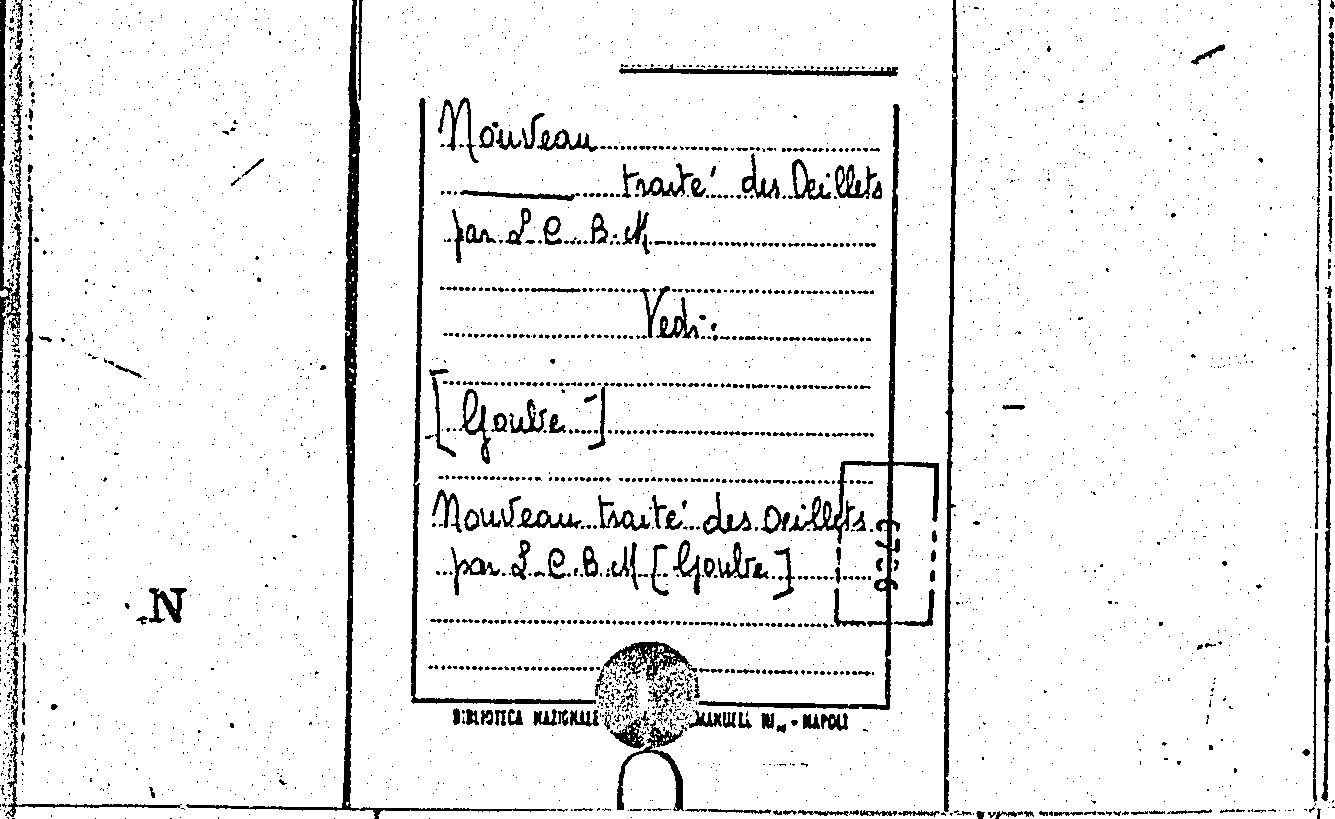 Nouveau
traité des Oeillets
par L. C. B. M.
Vedi:
[Goube]
Nouveau traité des Oeillets
par L. C. B. M [Goube]
BIBLIOTECA NAZIONALE - NAPOLI
N